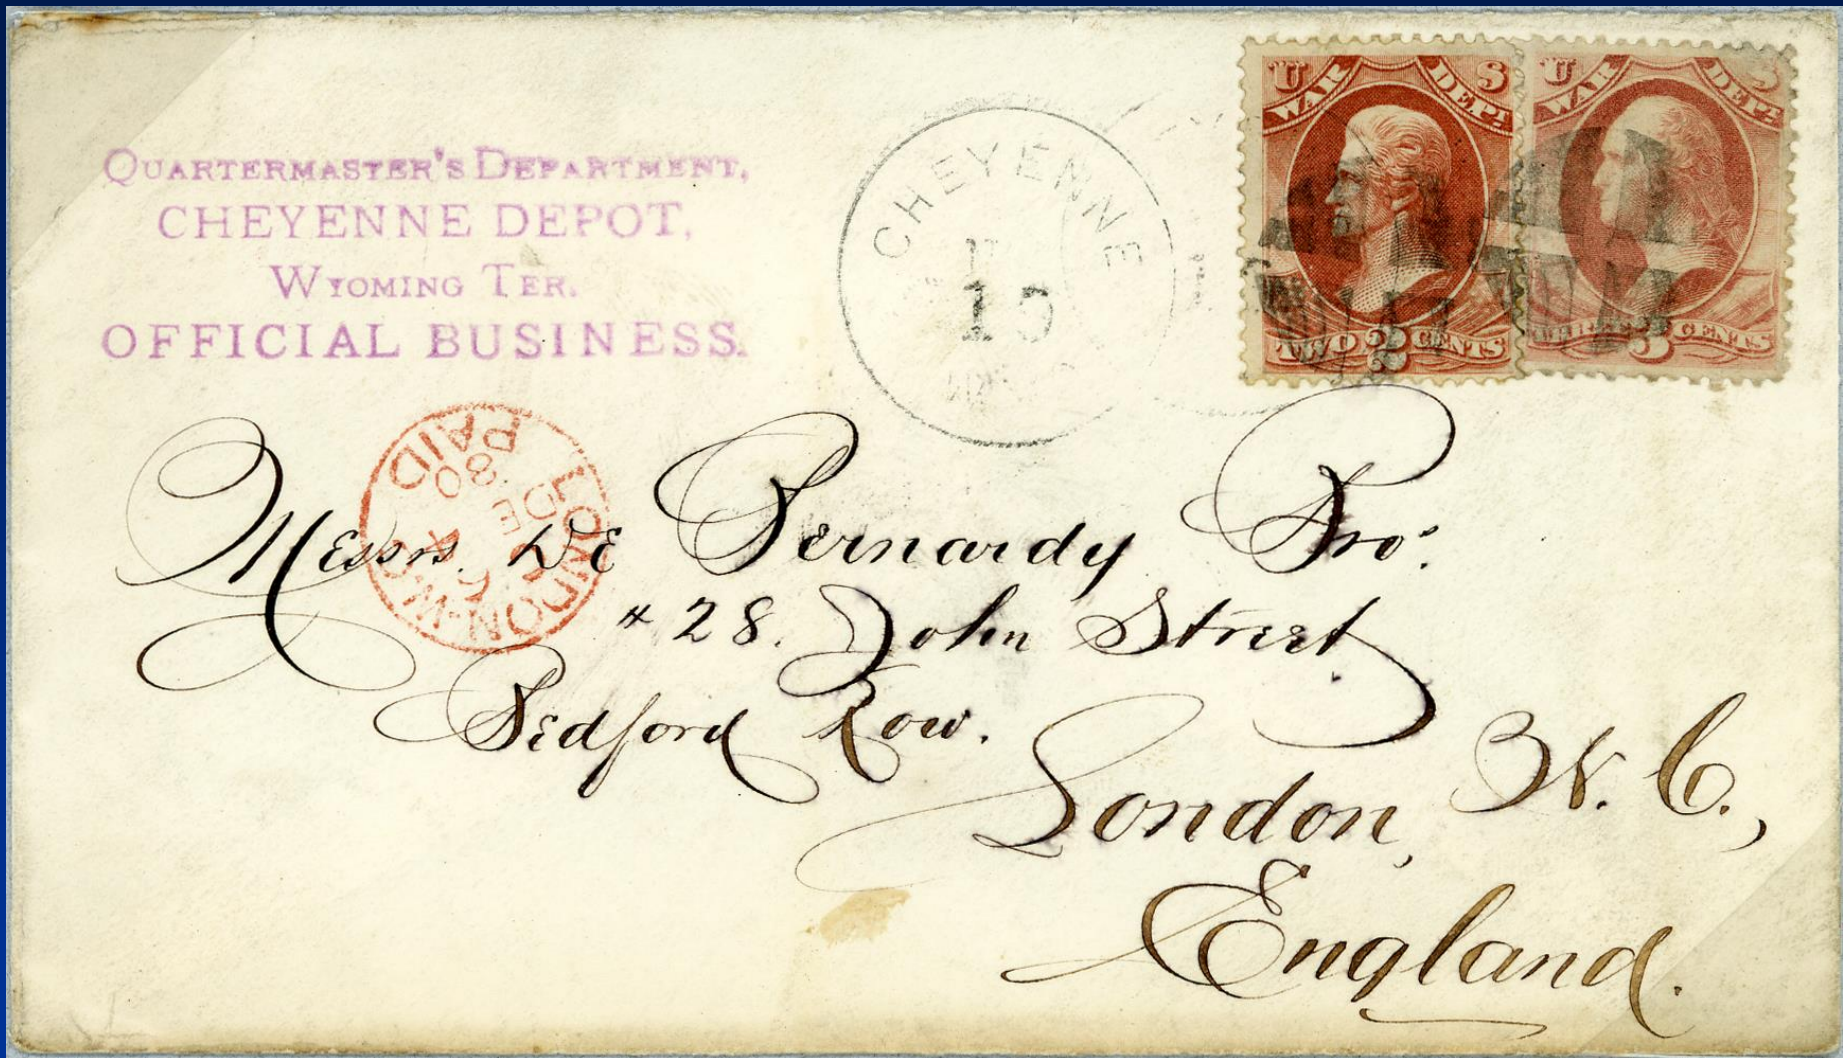 QUARTERMASTER'S DEPARTMENT,
CHEYENNE DEPOT,
WYOMING TER.
OFFICIAL BUSINESS.
CHEYENNE
U S
WAR DEPT.
TWO 2 CENTS
U S
WAR DEPT.
THREE 3 CENTS
LONDON-W.C
DE
80
PAID
Messrs. De Bernardy Bros.
# 28. John Street
Bedford Row.
London, W. C.,
England.